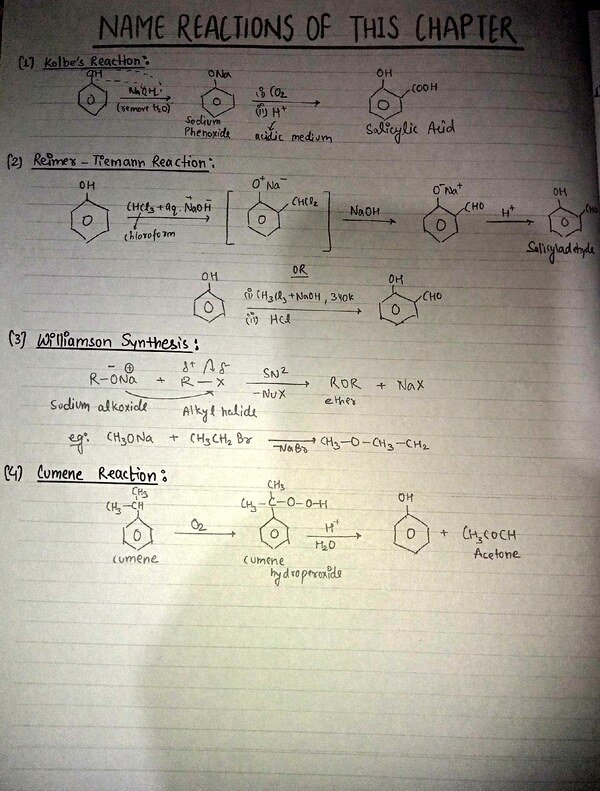 NAME REACTIONS OF THIS CHAPTER
(1) Kolbe's Reaction:
OH NaOH (remove H2O) ONa Sodium Phenoxide i) CO2 (ii) H+ acidic medium OH COOH Salicylic Acid
(2) Reimer - Tiemann Reaction:
OH CHCl3 + aq. NaOH chloroform O+ Na- CHCl2 NaOH O- Na+ CHO H+ OH CHO
OR
OH (i) CH3Cl3 + NaOH, 340K (ii) HCl OH CHO
(3) Williamson Synthesis:
R-ONa + R-X SN2 -NuX ROR + NaX
- ⊕ δ+ δ-
Sodium alkoxide Alkyl halide ether
eg: CH3ONa + CH3CH2Br -NaBr CH3-O-CH3-CH2
(4) Cumene Reaction:
CH3 CH3-CH O2 CH3 CH3-C-O-O-H H+ H2O OH + CH3COCH
cumene cumene hydroperoxide Acetone